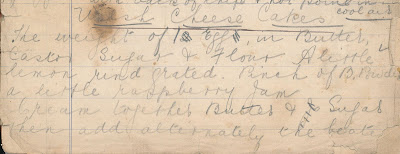 cool air
Welsh Cheese Cakes
The weight of 1 Egg, in Butter,
Castor Sugar & Flour A little
lemon rind grated. Pinch of B.
a little raspberry Jam
Cream together Butter & Sugar
then add alternately the